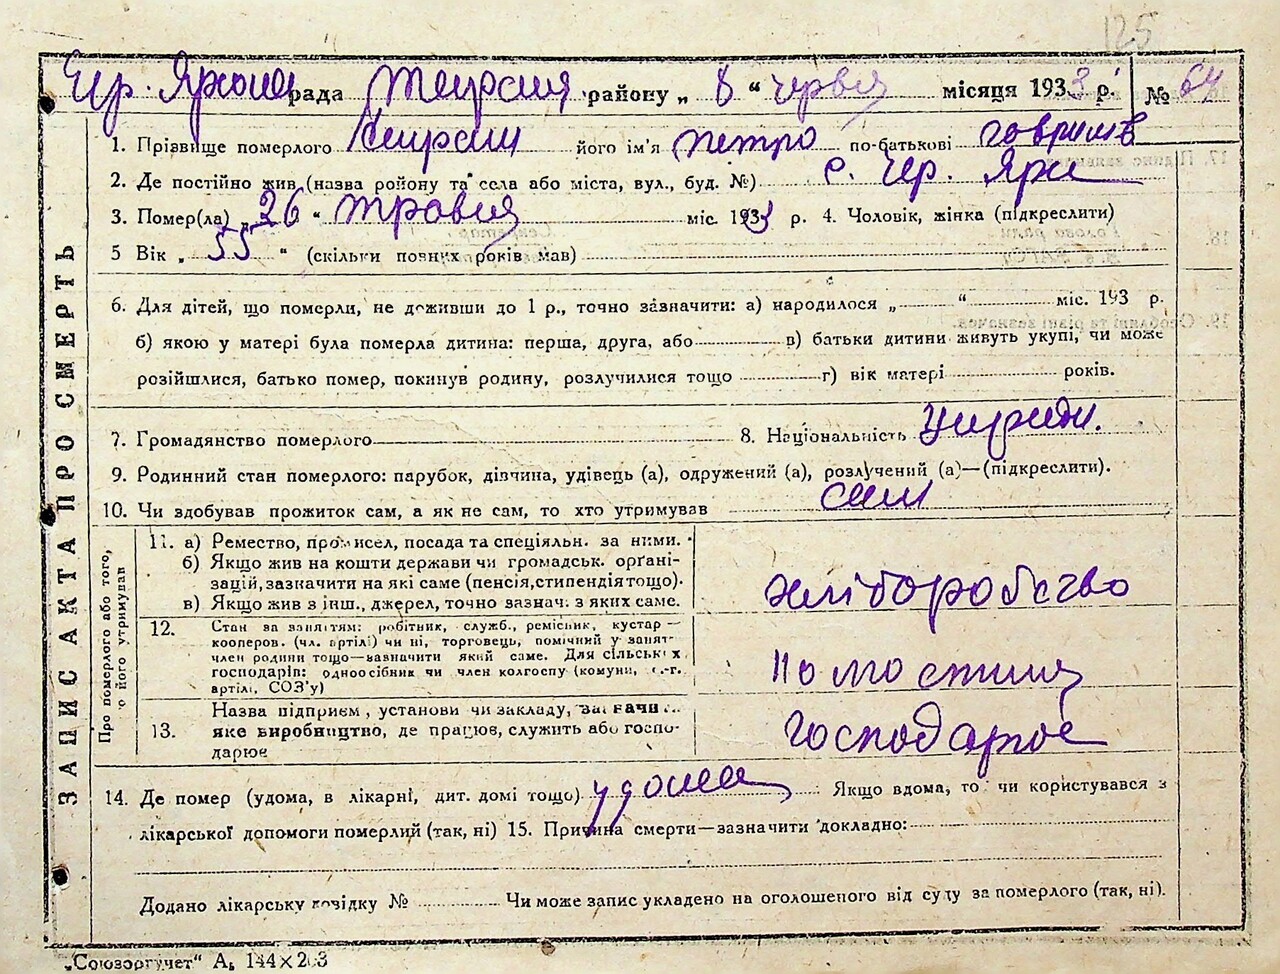 125
рада району „ 8 “ червня місяця 1933 р. № 64
1. Прізвище померлого його ім'я петро по-батькові
2. Де постійно жив (назва ройону та села або міста, вул., буд. №) с. Чер. Яри
3. Помер(ла) „ 26 “ травня міс. 1933 р. 4. Чоловік, жінка (підкреслити)
5 Вік „ 55 “ (скільки повних років мав)
6. Для дітей, що померли, не доживши до 1 р., точно зазначити: а) народилося „ “ міс. 193 р.
б) якою у матері була померла дитина: перша, друга, або в) батьки дитини живуть укупі, чи може
розійшлися, батько помер, покинув родину, розлучилися тощо г) вік матері років.
7. Громадянство померлого 8. Національність
9. Родинний стан померлого: парубок, дівчина, удівець (а), одружений (а), розлучений (а)—(підкреслити).
10. Чи здобував прожиток сам, а як не сам, то хто утримував сам
ЗАПИС АКТА ПРО СМЕРТЬ
Про померлого або того, хто його утримував
11. а) Ремество, промисел, посада та спеціяльн. за ними.
б) Якщо жив на кошти держави чи громадськ. орґані-
зацій, зазначити на які саме (пенсія, стипендія тощо).
в) Якщо жив з інш., джерел, точно зазнач. з яких саме.
хліборобство
12. Стан за заняттям: робітник, служб., ремісник, кустар—
кооперов. (чл. артілі) чи ні, торговець, помічний у занят-
член родини тощо—зазначити який саме. Для сільських
господарів: одноосібник чи член колгоспу (комуни, с.-г.
артілі, СОЗ'у)
13. Назва підприєм, установи чи закладу, зазначи
яке виробництво, де працює, служить або госпо-
дарює
господарює
14. Де помер (удома, в лікарні, дит. домі тощо) удома Якщо вдома, то чи користувався з
лікарської допомоги померлий (так, ні) 15. Причина смерти—зазначити докладно:
Додано лікарську довідку № Чи може запис укладено на оголошеного від суду за померлого (так, ні).
„Союзоргучет“ А, 144×203